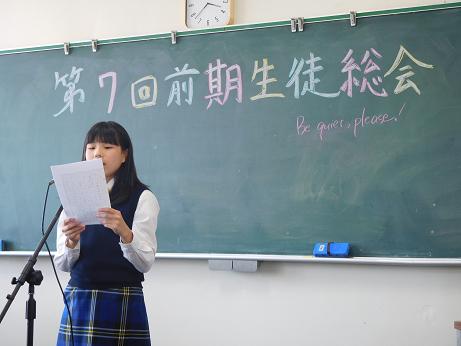 第7回前期生徒総会
Be quiet, please!